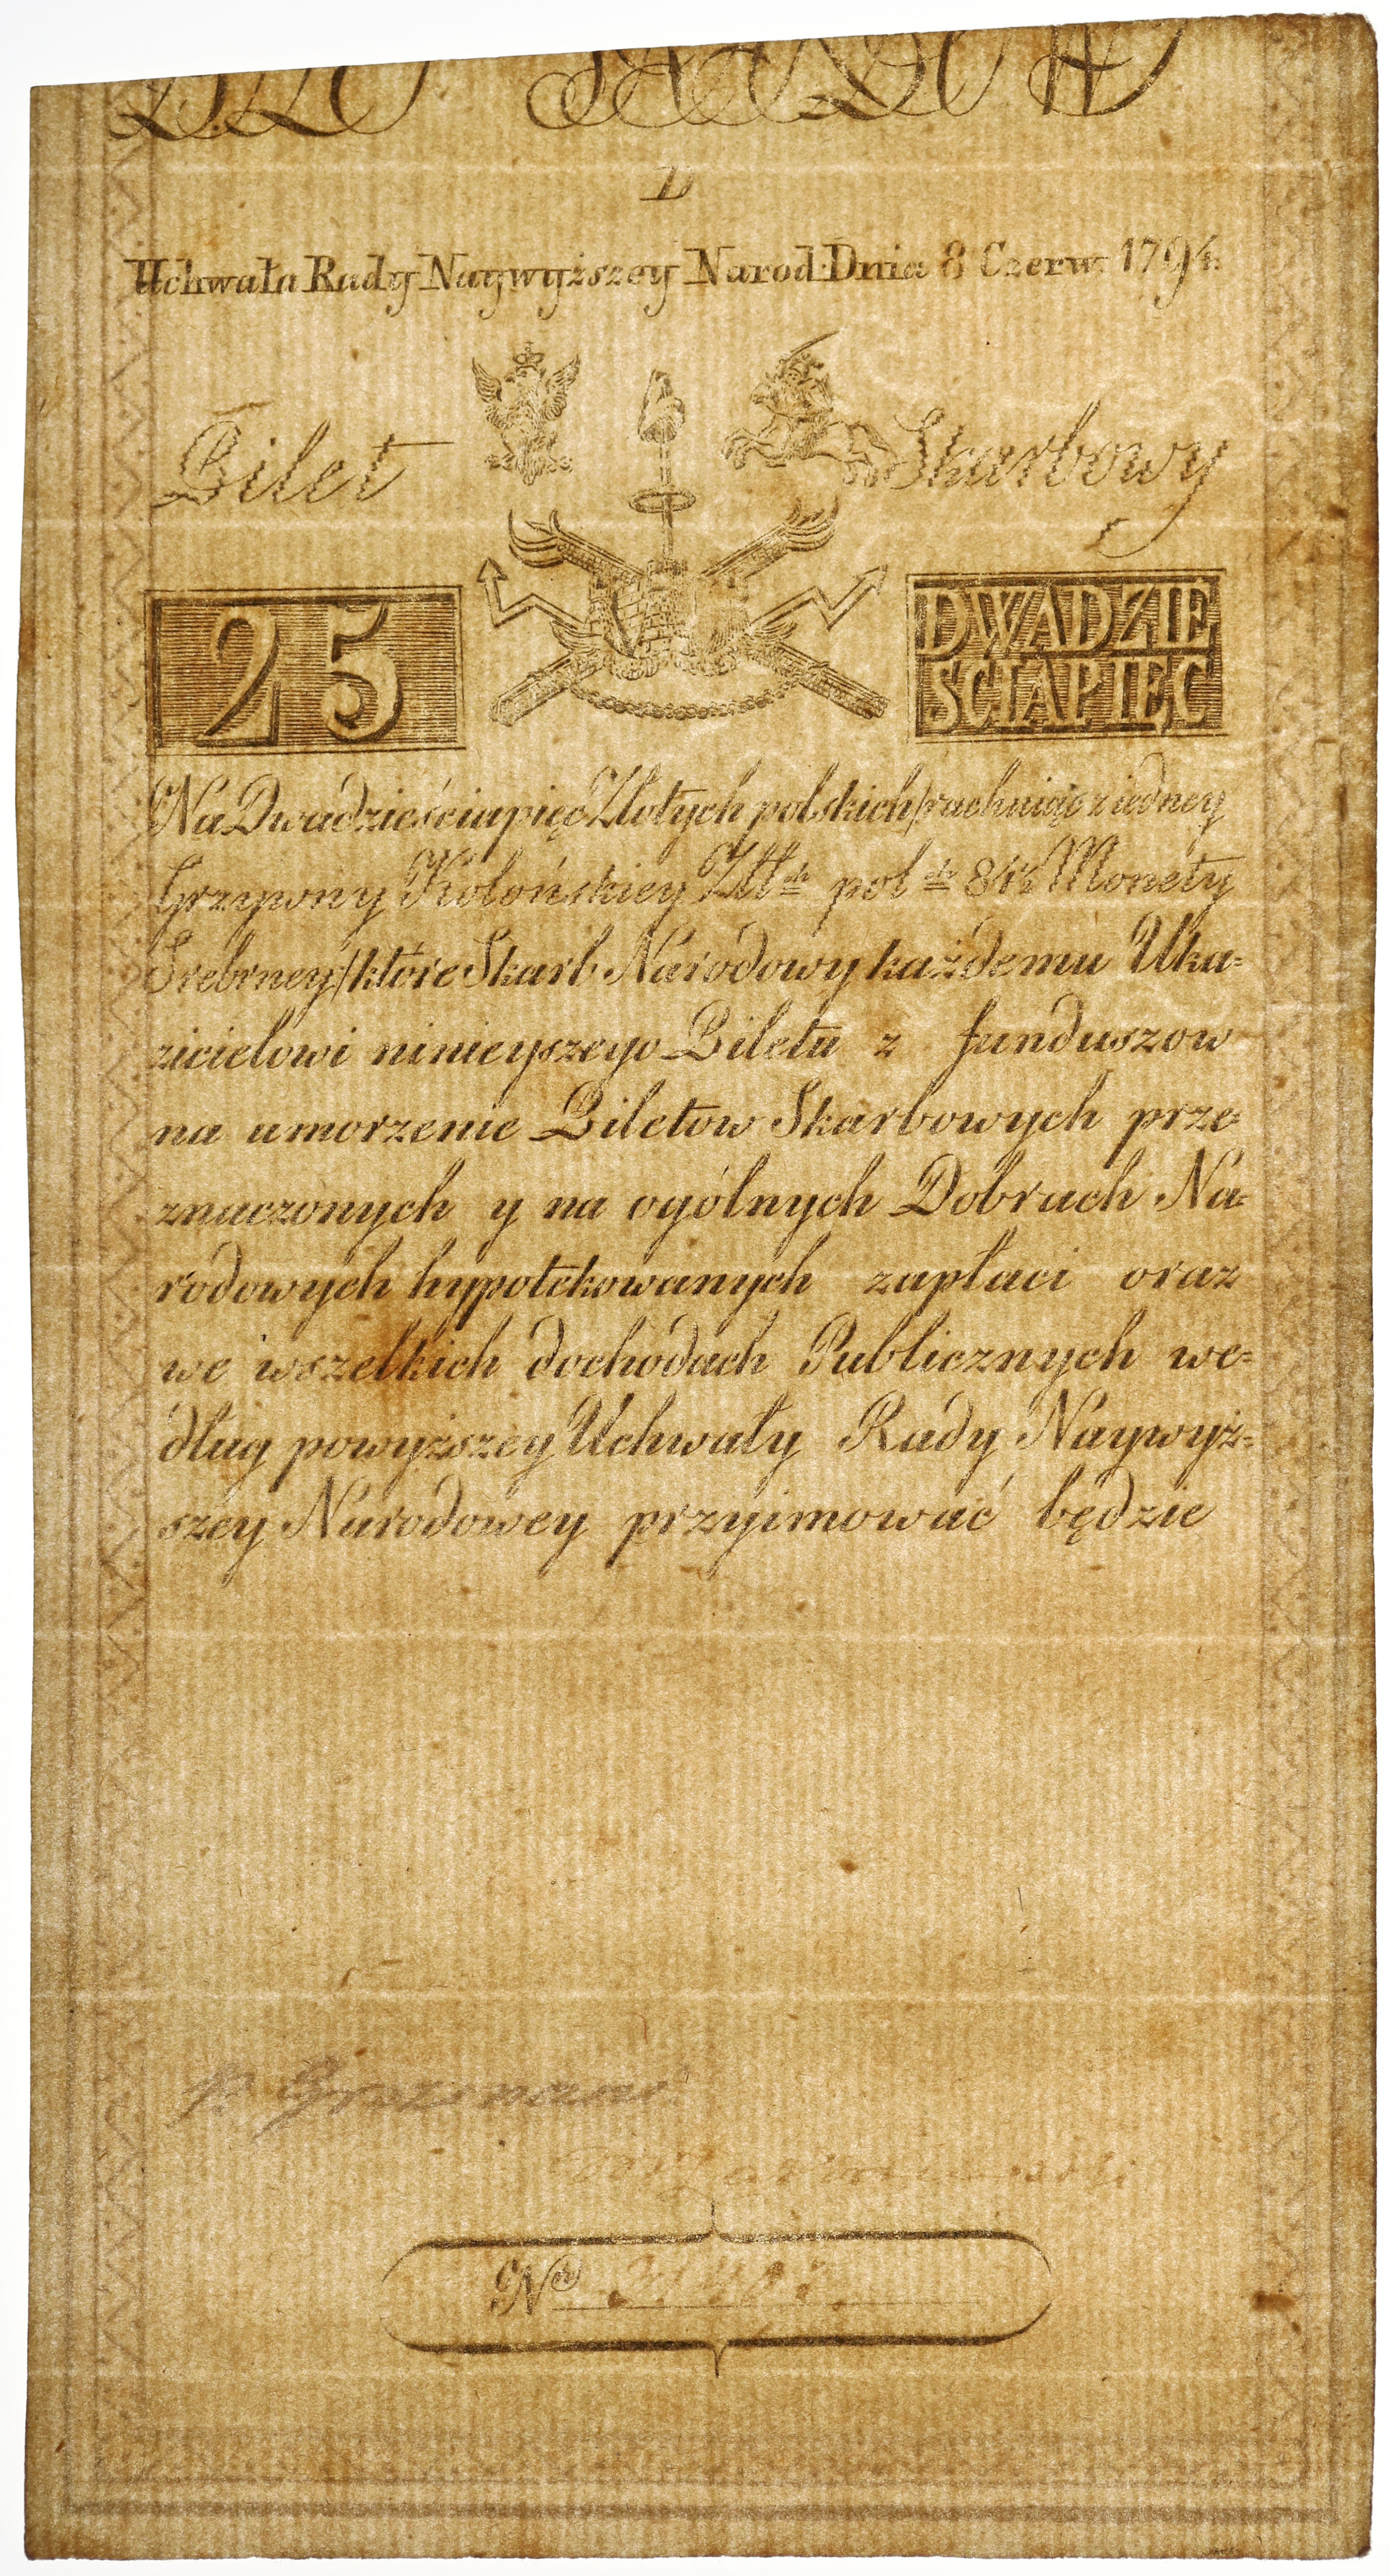 D
Uchwała Rady Naywyższey Narod: Dnia 8 Czerw. 1794.
Bilet Skarbowy
25
DWADZIE
SCIAPIĘC
Na Dwadzieściapięć Złotych polskich/rachuiąc z iedney
Grzywny Kolońskiey Złł ch pol ch 84½ Monety
Srebrney/które Skarb Narodowy każdemu Uka=
zicielowi ninieyszego Biletu z funduszow
na umorzenie Biletow Skarbowych prze=
znaczonych y na ogólnych Dobrach Na=
rodowych hypotekowanych zapłaci oraz
we wszelkich dochodach Publicznych we=
dług powyższey Uchwały Rady Naywyż=
szey Narodowey przyimować będzie
Nro